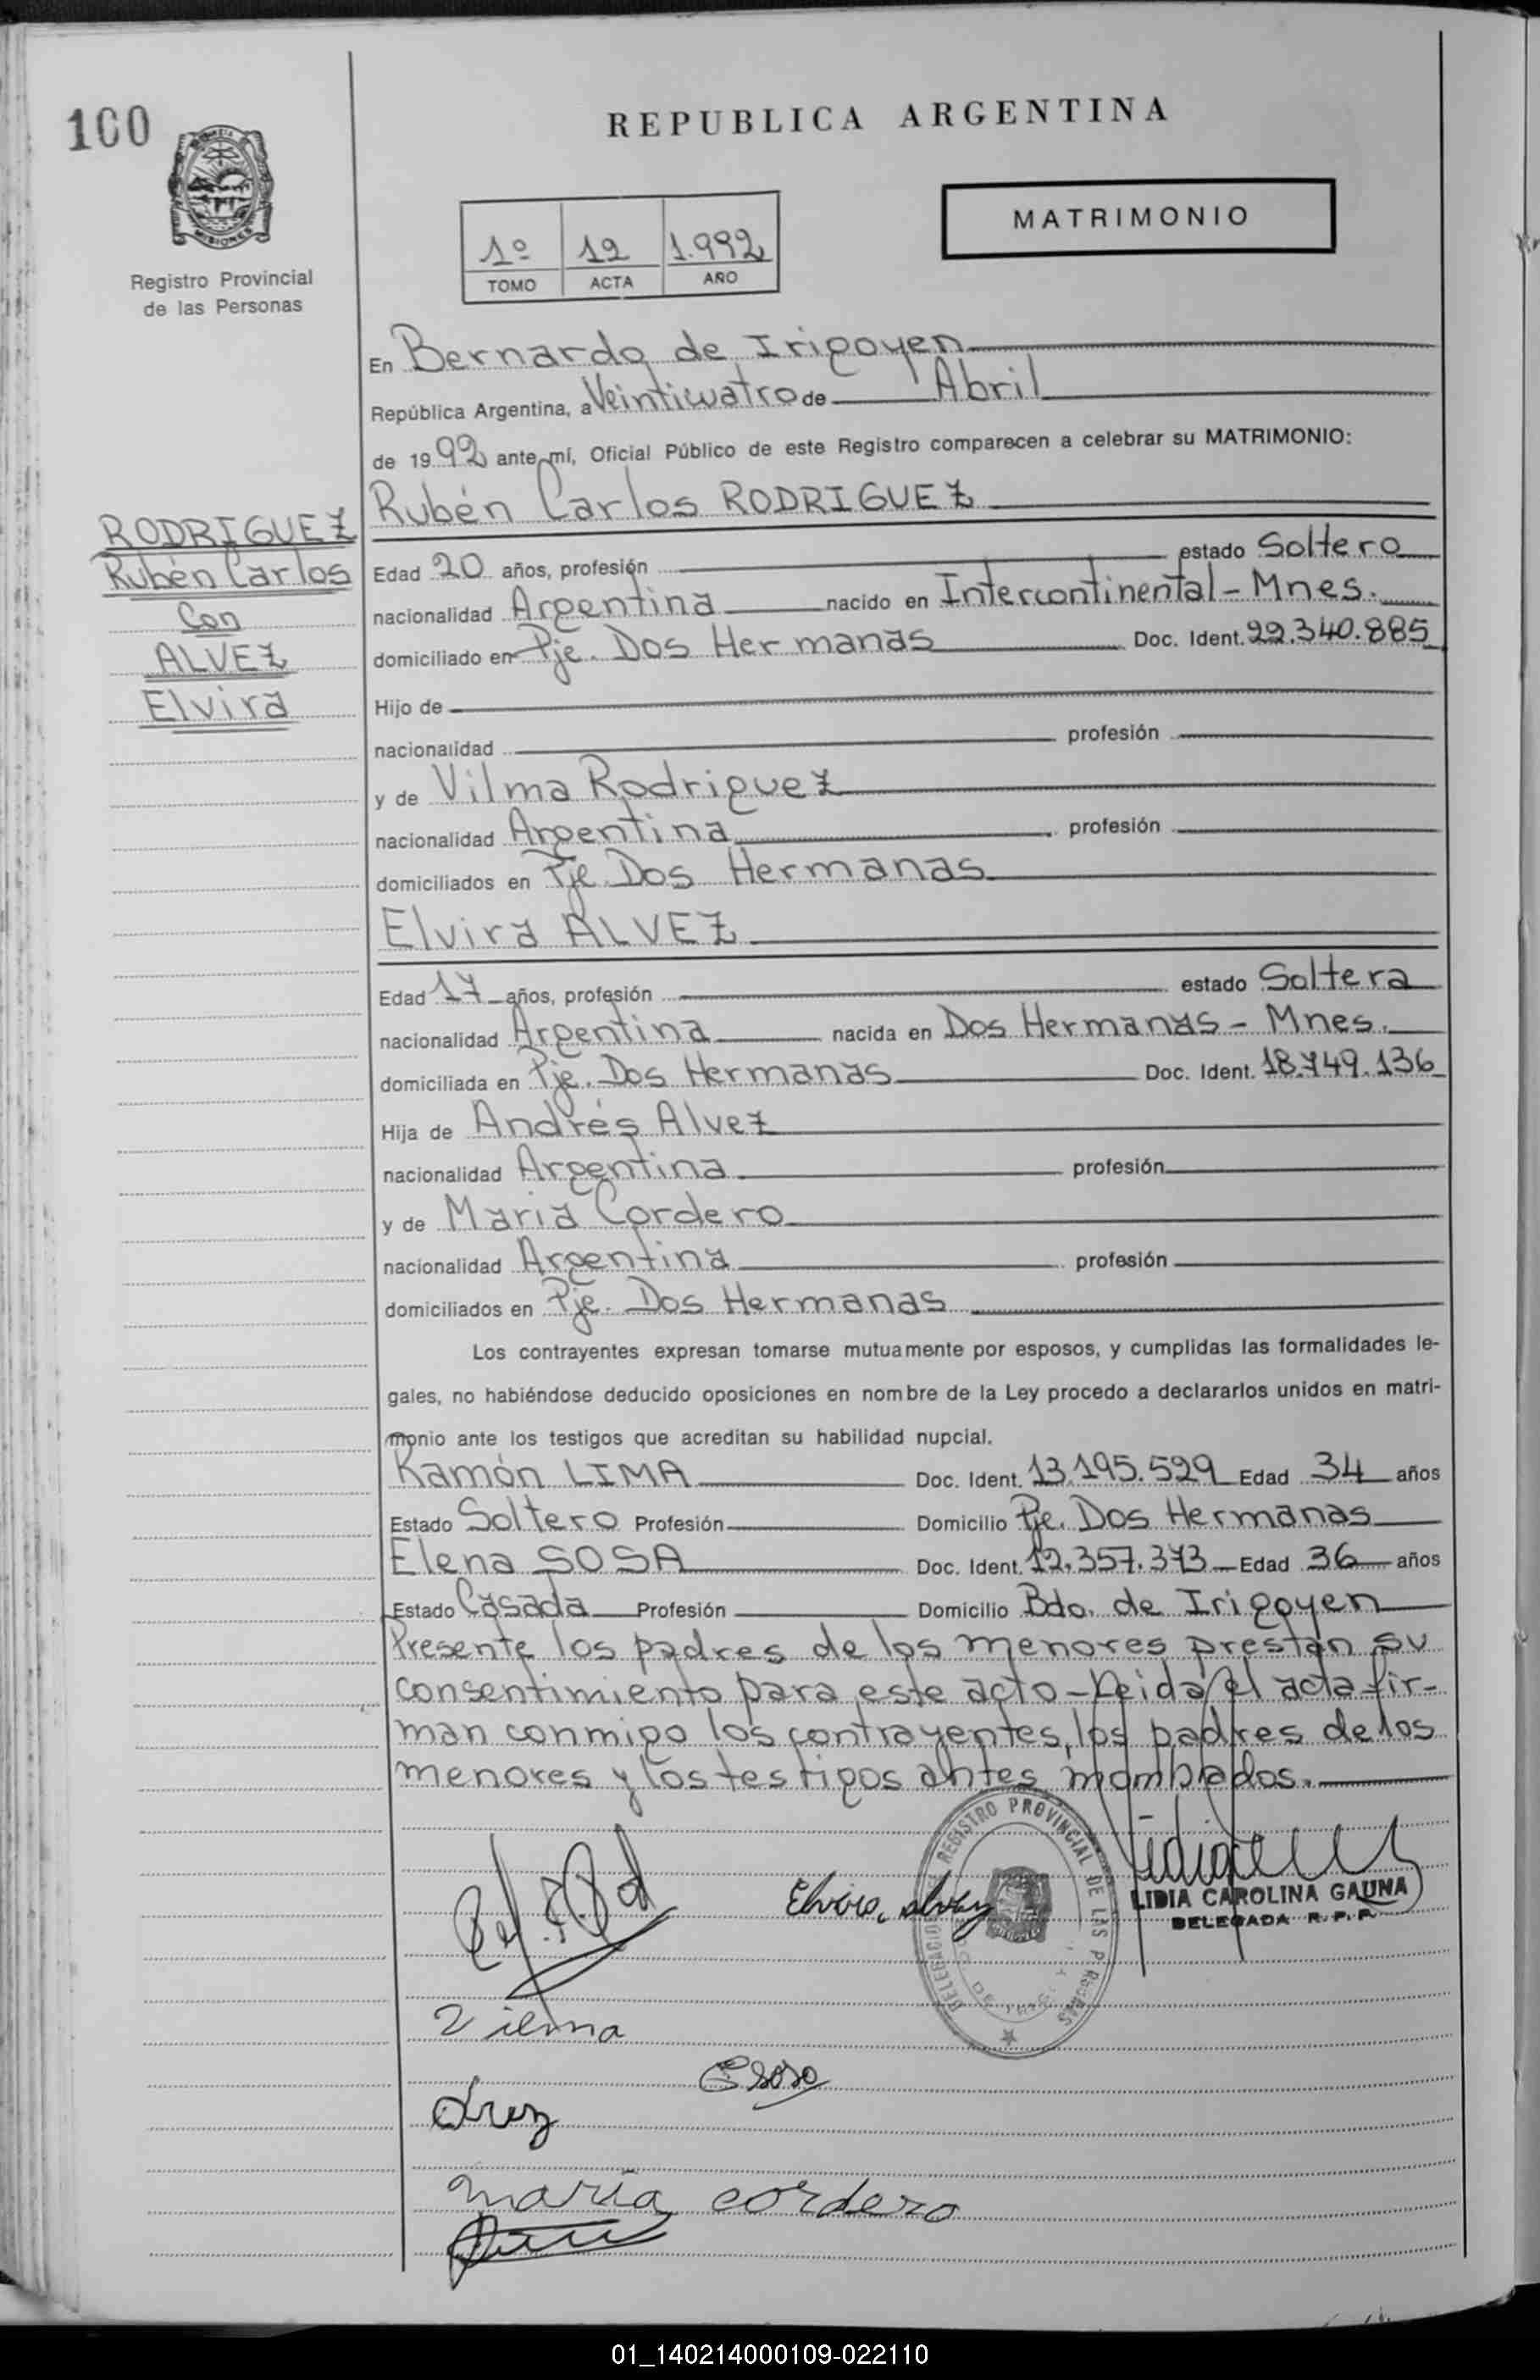 100
REPUBLICA ARGENTINA
MISIONES
Registro Provincial
de las Personas
1º 12 1.992
TOMO ACTA AÑO
MATRIMONIO
En Bernardo de Irigoyen
República Argentina, a Veinticuatro de Abril
de 1992 ante mí, Oficial Público de este Registro comparecen a celebrar su MATRIMONIO:
Rubén Carlos RODRIGUEZ
RODRIGUEZ
Rubén Carlos
Con
ALVEZ
Elvira
Edad 20 años, profesión estado Soltero
nacionalidad Argentina nacido en Intercontinental - Mnes.
domiciliado en Pje. Dos Hermanas Doc. Ident. 22.340.885
Hijo de
nacionalidad profesión
y de Vilma Rodriguez
nacionalidad Argentina profesión
domiciliados en Pje. Dos Hermanas
Elvira ALVEZ
Edad 17 años, profesión estado Soltera
nacionalidad Argentina nacida en Dos Hermanas - Mnes.
domiciliada en Pje. Dos Hermanas Doc. Ident. 18.749.136
Hija de Andrés Alvez
nacionalidad Argentina profesión
y de Maria Cordero
nacionalidad Argentina profesión
domiciliados en Pje. Dos Hermanas
Los contrayentes expresan tomarse mutuamente por esposos, y cumplidas las formalidades le-
gales, no habiéndose deducido oposiciones en nombre de la Ley procedo a declararlos unidos en matri-
monio ante los testigos que acreditan su habilidad nupcial.
Ramón LIMA Doc. Ident. 13.195.529 Edad 34 años
Estado Soltero Profesión Domicilio Pje. Dos Hermanas
Elena SOSA Doc. Ident. 12.357.373 Edad 36 años
Estado Casada Profesión Domicilio Bdo. de Irigoyen
Presente los padres de los menores prestan su
consentimiento para este acto - Leida el acta fir-
man conmigo los contrayentes, los padres de los
menores y los testigos antes mombrados.
REGISTRO PROVINCIAL DE LAS PERSONAS
Elvira Alvez
LIDIA CAROLINA GAUNA
DELEGADA R.P.P.
Vilma
E Sosa
maria cordero
01_140214000109-022110